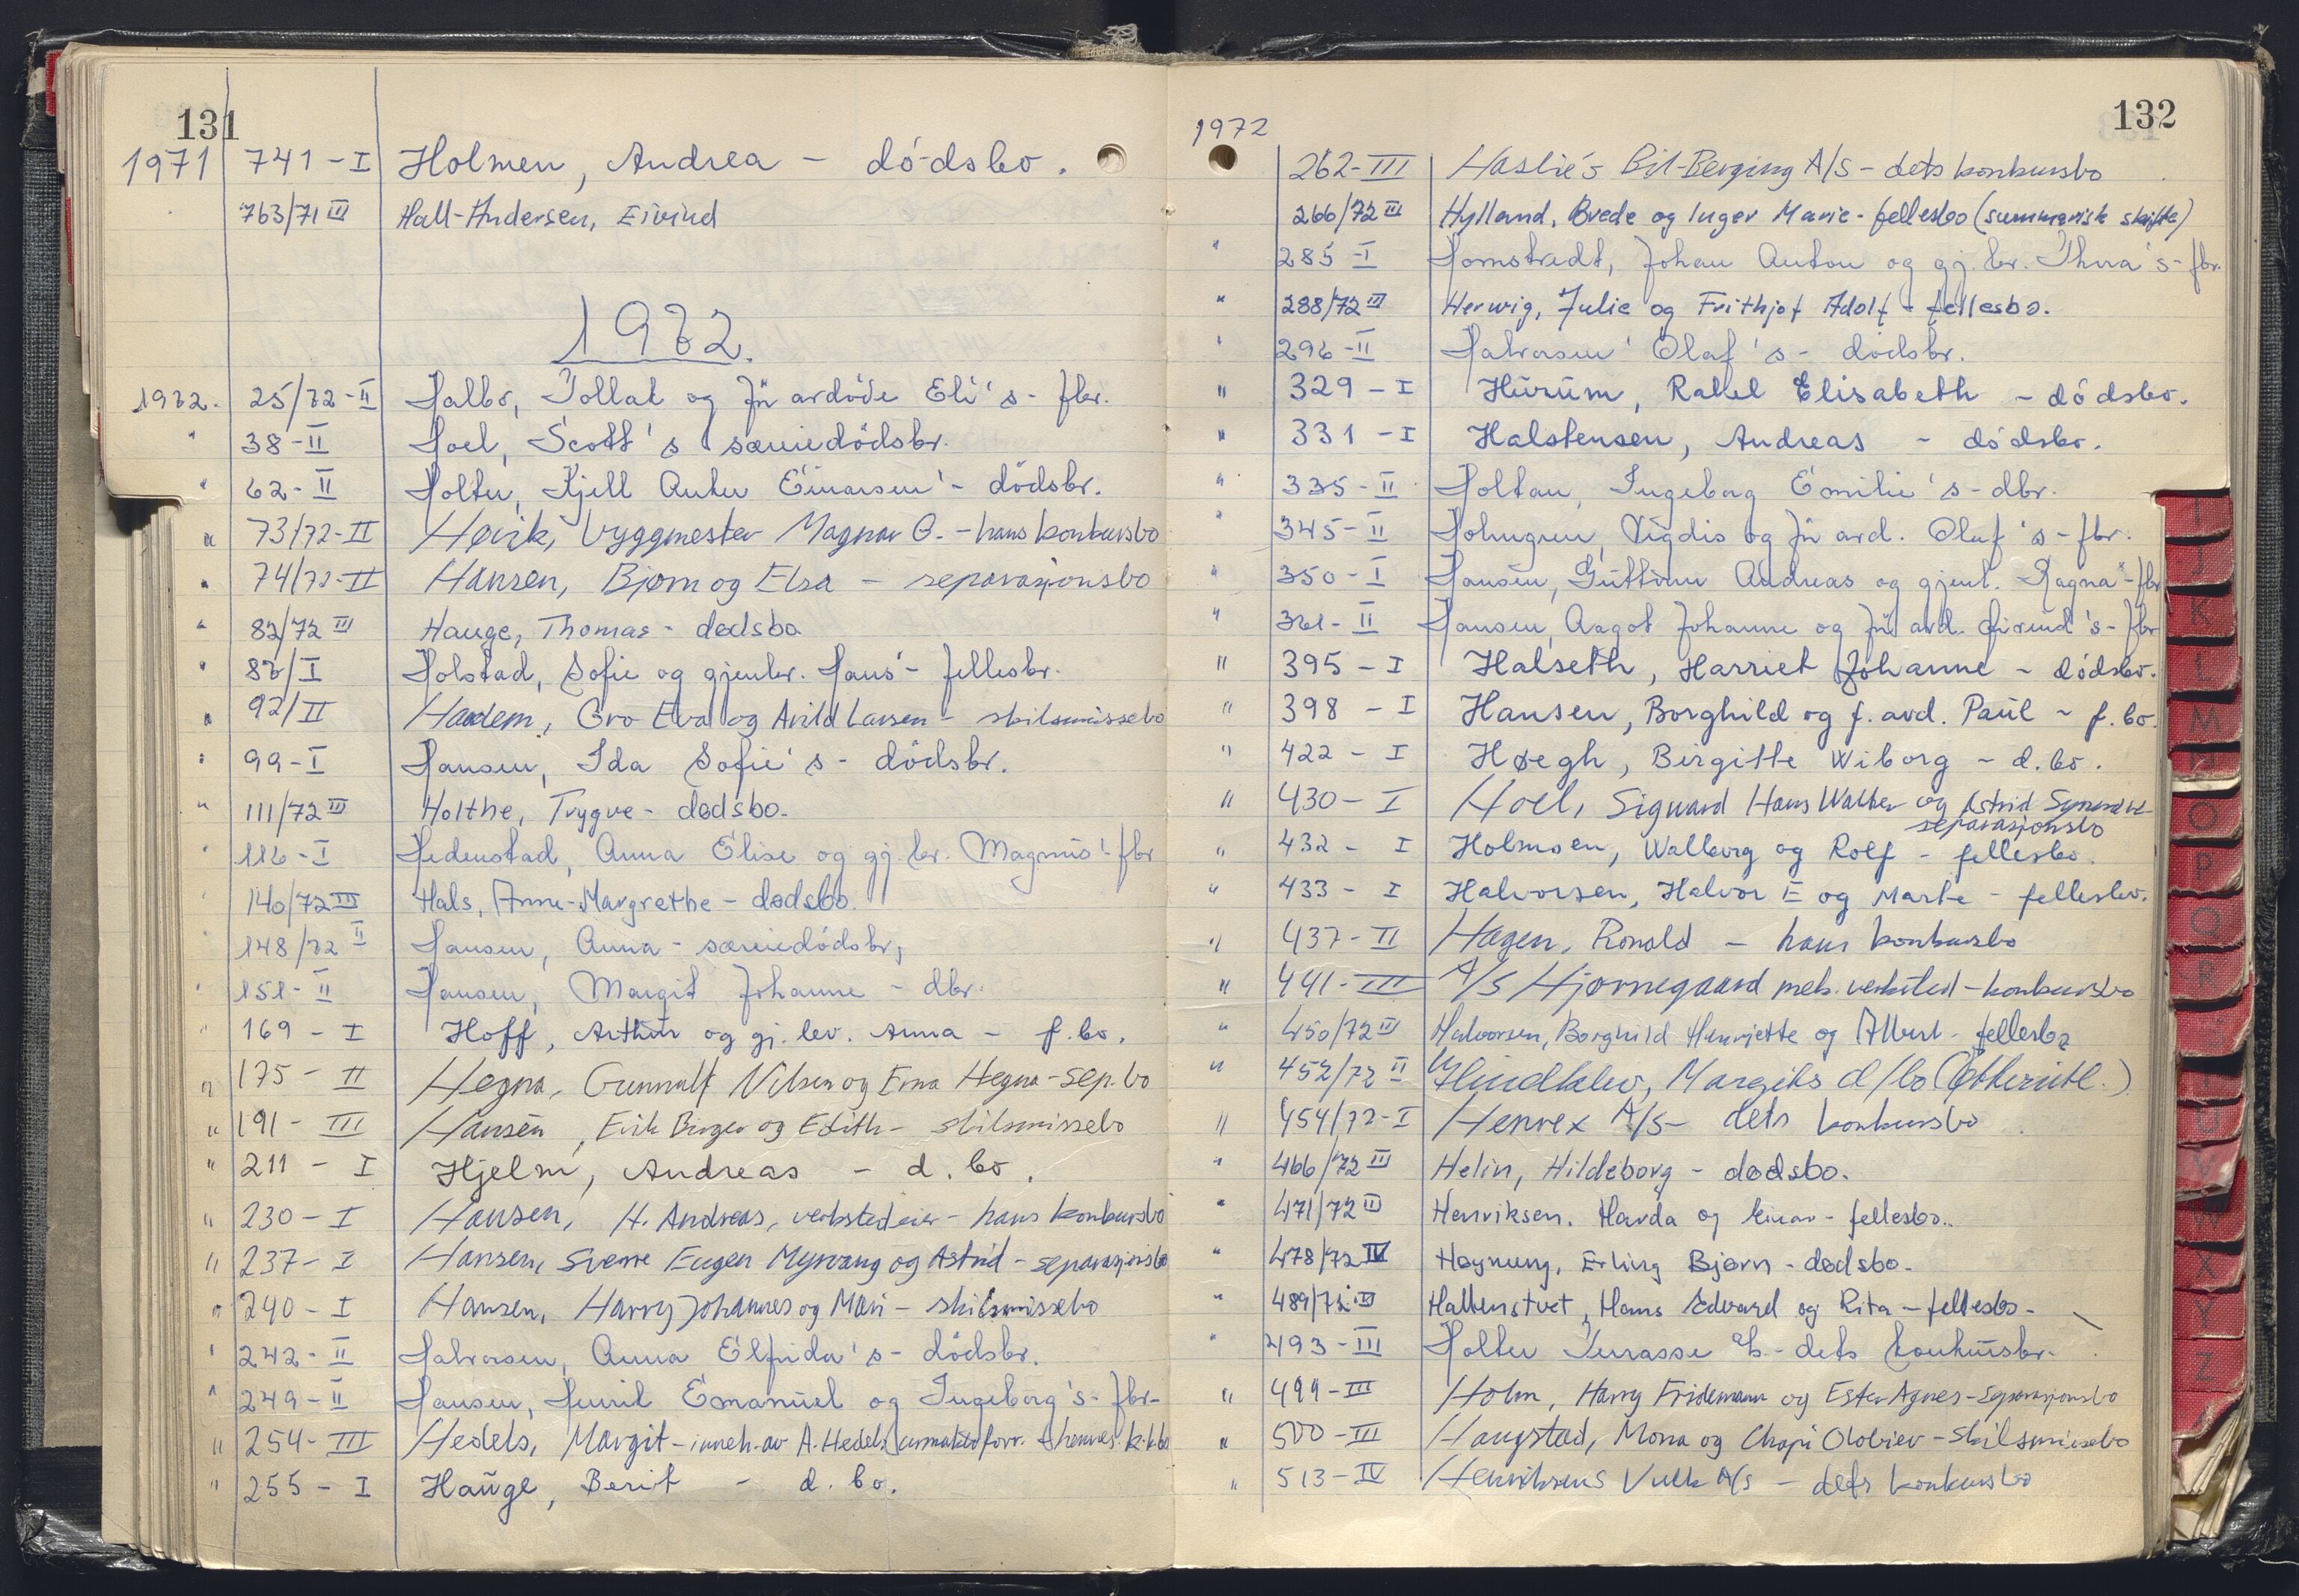 131
1971 741-I Holmen, Andrea - dödsbo.
763/71 III Hall-Andersen, Eivind
1972.
1972. 25/72-II Halbo, Tollak og fü avdöde Eli's - fbr.
" 38-II Hoel, Scott's særiedödsbr.
" 62-II Holter, Kjell Anter Einarsen' - dödsbr.
" 73/72-II Høvik, byggmester Magnar O. - hans konkursbo
" 74/72-II Hansen, Bjørn og Elsa - separasjonsbo
" 82/72 III Hauge, Thomas - dødsbo
" 87/I Holstad, Sofie og gjenlev. Hans' - fellesbr.
" 92/II Haadem, Gro Eva og Arild Larsen - skilsmissebo
" 99-I Hansen, Ida Sofie's - dödsbr.
" 111/72 III Holthe, Trygve - dødsbo.
" 116-I Hedenstad, Anna Elise og gj.lev. Magnüs' - fbr
" 140/72 III Hals, Anne-Margrethe - dødsbo.
" 148/72 II Hansen, Anna - særiedödsbr,
" 151-II Hansen, Margit Johanne - dbr.
" 169 - I Hoff, Arthür og gj. lev. Anna - f.bo.
" 175 - II Hegna, Gunnulf Nilsen og Erna Hegna - sep.bo
" 191 - III Hansen, Erik Birger og Edith - skilsmissebo
" 211 - I Hjelm, Andreas - d.bo.
" 230 - I Hansen, H. Andreas, verkstedeier - hans konkursbo
" 237 - I Hansen, Sverre Eugen Myrvang og Astrid - separasjonsbo
" 240 - I Hansen, Harry Johannes og Mari - skilsmissebo
" 242 - II Halvorsen, Anna Elfrida's - dödsbr.
" 249 - II Hansen, Henrik Emanüel og Ingeborg's - fbr-
" 254 - III Hedels, Margit - inneh. av A. Hedels hennes k.bo
" 255 - I Haüge, Berit - d. bo.
132
1972
262-III Haslie's Bil-Berging A/S - dets konkursbo
266/72 III Hylland, Brede og Inger Marie - fellesbo (summarisk skifte)
" 285-I Homstvedt, Johan Anton og gj.lev. Thora's - fbr.
" 288/72 III Herwig, Julie og Frithjof Adolf - fellesbo.
" 296-II Halvorsen' Olaf's - dödsbr.
" 329 - I Hürüm, Rakel Elisabeth - dödsbo.
" 331 - I Halstensen, Andreas - dödsbo.
" 335 - II Holtan, Ingeborg Emilie's - dbr.
" 345 - II Holmgren, Vigdis og fü avd. Olaf's - fbr.
" 350 - I Hansen, Güttorm Andreas og gjenl. Ragna' - fbr
" 361 - II Hansen, Aagot Johanne og fü avd. Eivind's - fbr
" 395 - I Halseth, Harriet Johanne - dödsbo.
" 398 - I Hansen, Borghild og f. avd. Paül - f. bo.
" 422 - I Høegh, Birgitte Wiborg - d. bo.
" 430 - I Hoel, Sigvard Hans Walter og Astrid
separasjonsbo
" 432 - I Holmsen, Walborg og Rolf - fellesbo.
" 433 - I Halvorsen, Halvor E og Marte - fellesbo.
" 437 - II Hagen, Ronald - hans konkursbo
" 441 - III A/S Hjørnegaard mek. verksted - konkursbo
" 450/72 III Halvorsen, Borghild Henrjette og Albert - fellesbo
" 452/72 II Hindklev, Margits d/bo
" 454/72-I Henrex A/S - dets konkursbo
" 466/72 III Helin, Hildeborg - dødsbo.
" 471/72 III Henriksen, Harda og Einar - fellesbo.
" 478/72 IV Høynung, Erling Bjørn - dødsbo.
" 489/72 III Hallenstvet, Hans Edvard og Rita - fellesbo -
" 493 - III Holter Terrasse A/S - dets konkürsbr.
" 499 - III Holm, Harry Fridemann og Ester Agnes - separasjonsbo
" 500 - III Haugstad, Mona og - skilsmissebo
" 513 - IV Henriksens Vulk A/S - dets konkursbo
I
J
K
L
M
N
O
P
Q
R
T
U
V
W
X
Y
Z